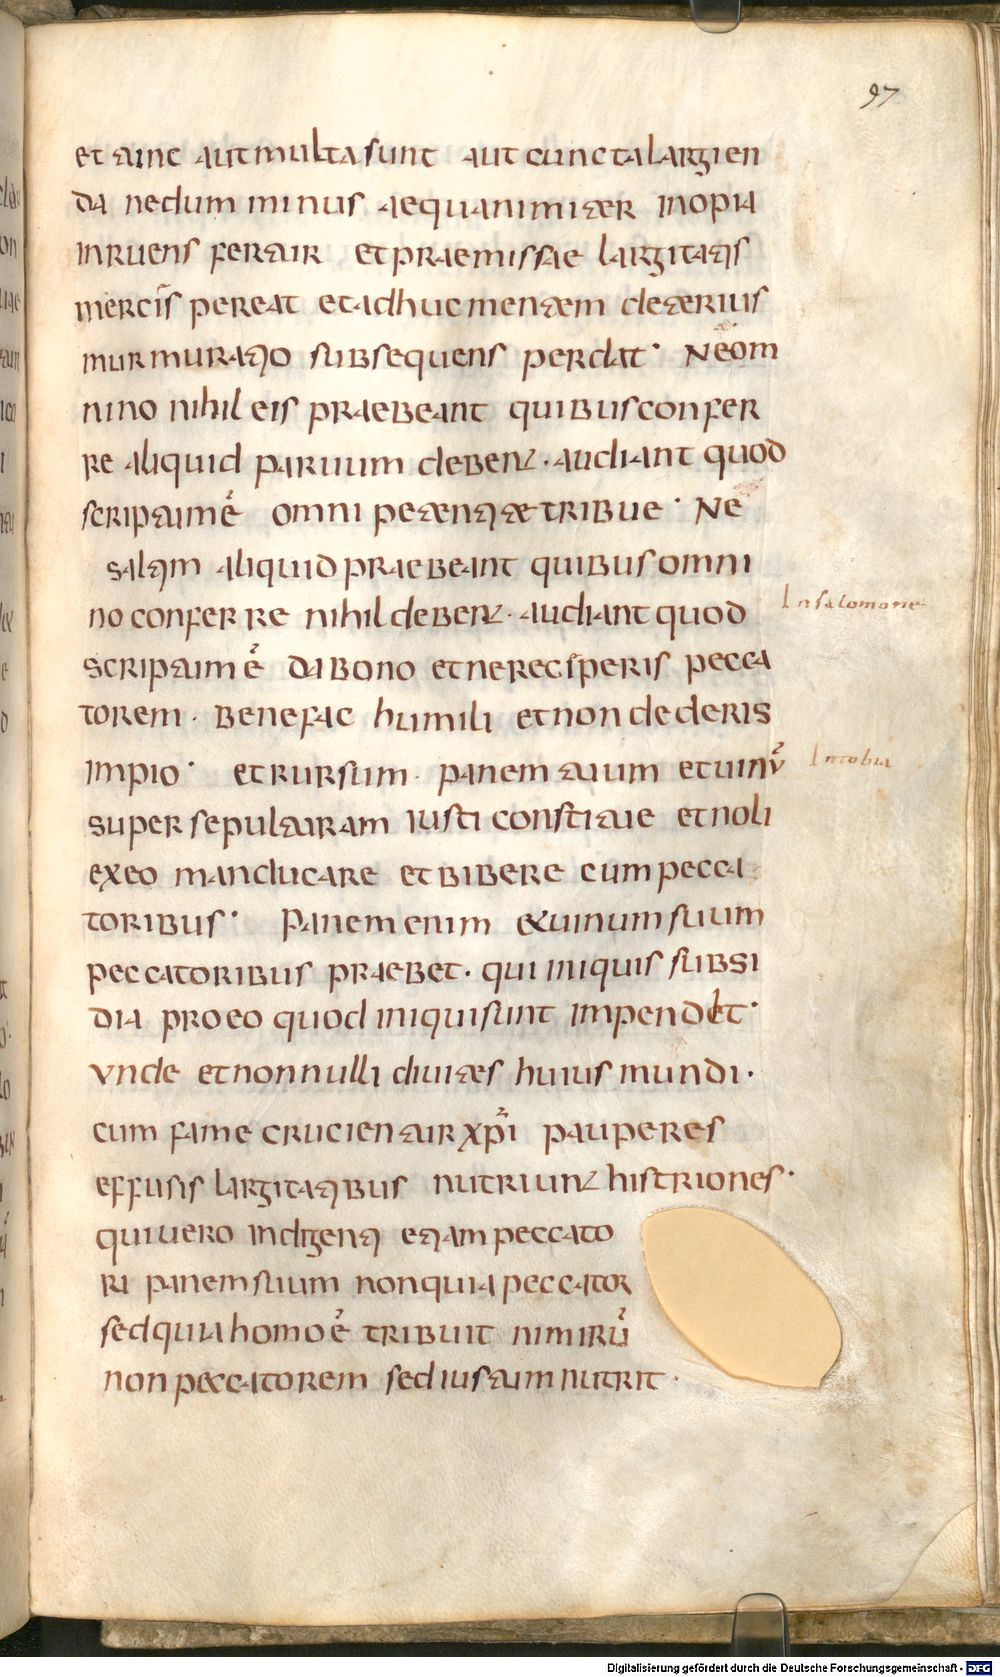 97
et tunc aut multa sunt aut cuncta largien
da nedum minus aequanimiter inopia
inruens feratur et praemissae largitatis
mercis pereat et adhuc mentem deterius
murmuratio subsequens perdat · Ne om
nino nihil eis praebeant quibus confer
re aliquid paruum debent · audiant quod
scriptum ē omni petenti te tribue · Ne
saltim aliquid praebeant quibus omni
no conferre nihil debent · audiant quod
In salomone
scriptum ē da bono et ne reciperis pecca
torem · Benefac humili et non dederis
impio · et rursum · panem tuum et uinū
In tobia
super sepulturam iusti constitue et noli
ex eo manducare et bibere cum pecca
toribus · Panem enim et uinum suum
peccatoribus praebet · qui iniquis subsi
dia pro eo quod iniqui sunt impendet ·
vnde et nonnulli diuites huius mundi ·
cum fame crucientur xp̄i pauperes
effusis largitatibus nutriunt histriones ·
qui uero indigenti etiam peccato
ri panem suum non quia peccator
sed quia homo ē tribuit nimirū
non peccatorem sed iustum nutrit ·
Digitalisierung gefördert durch die Deutsche Forschungsgemeinschaft - DFG